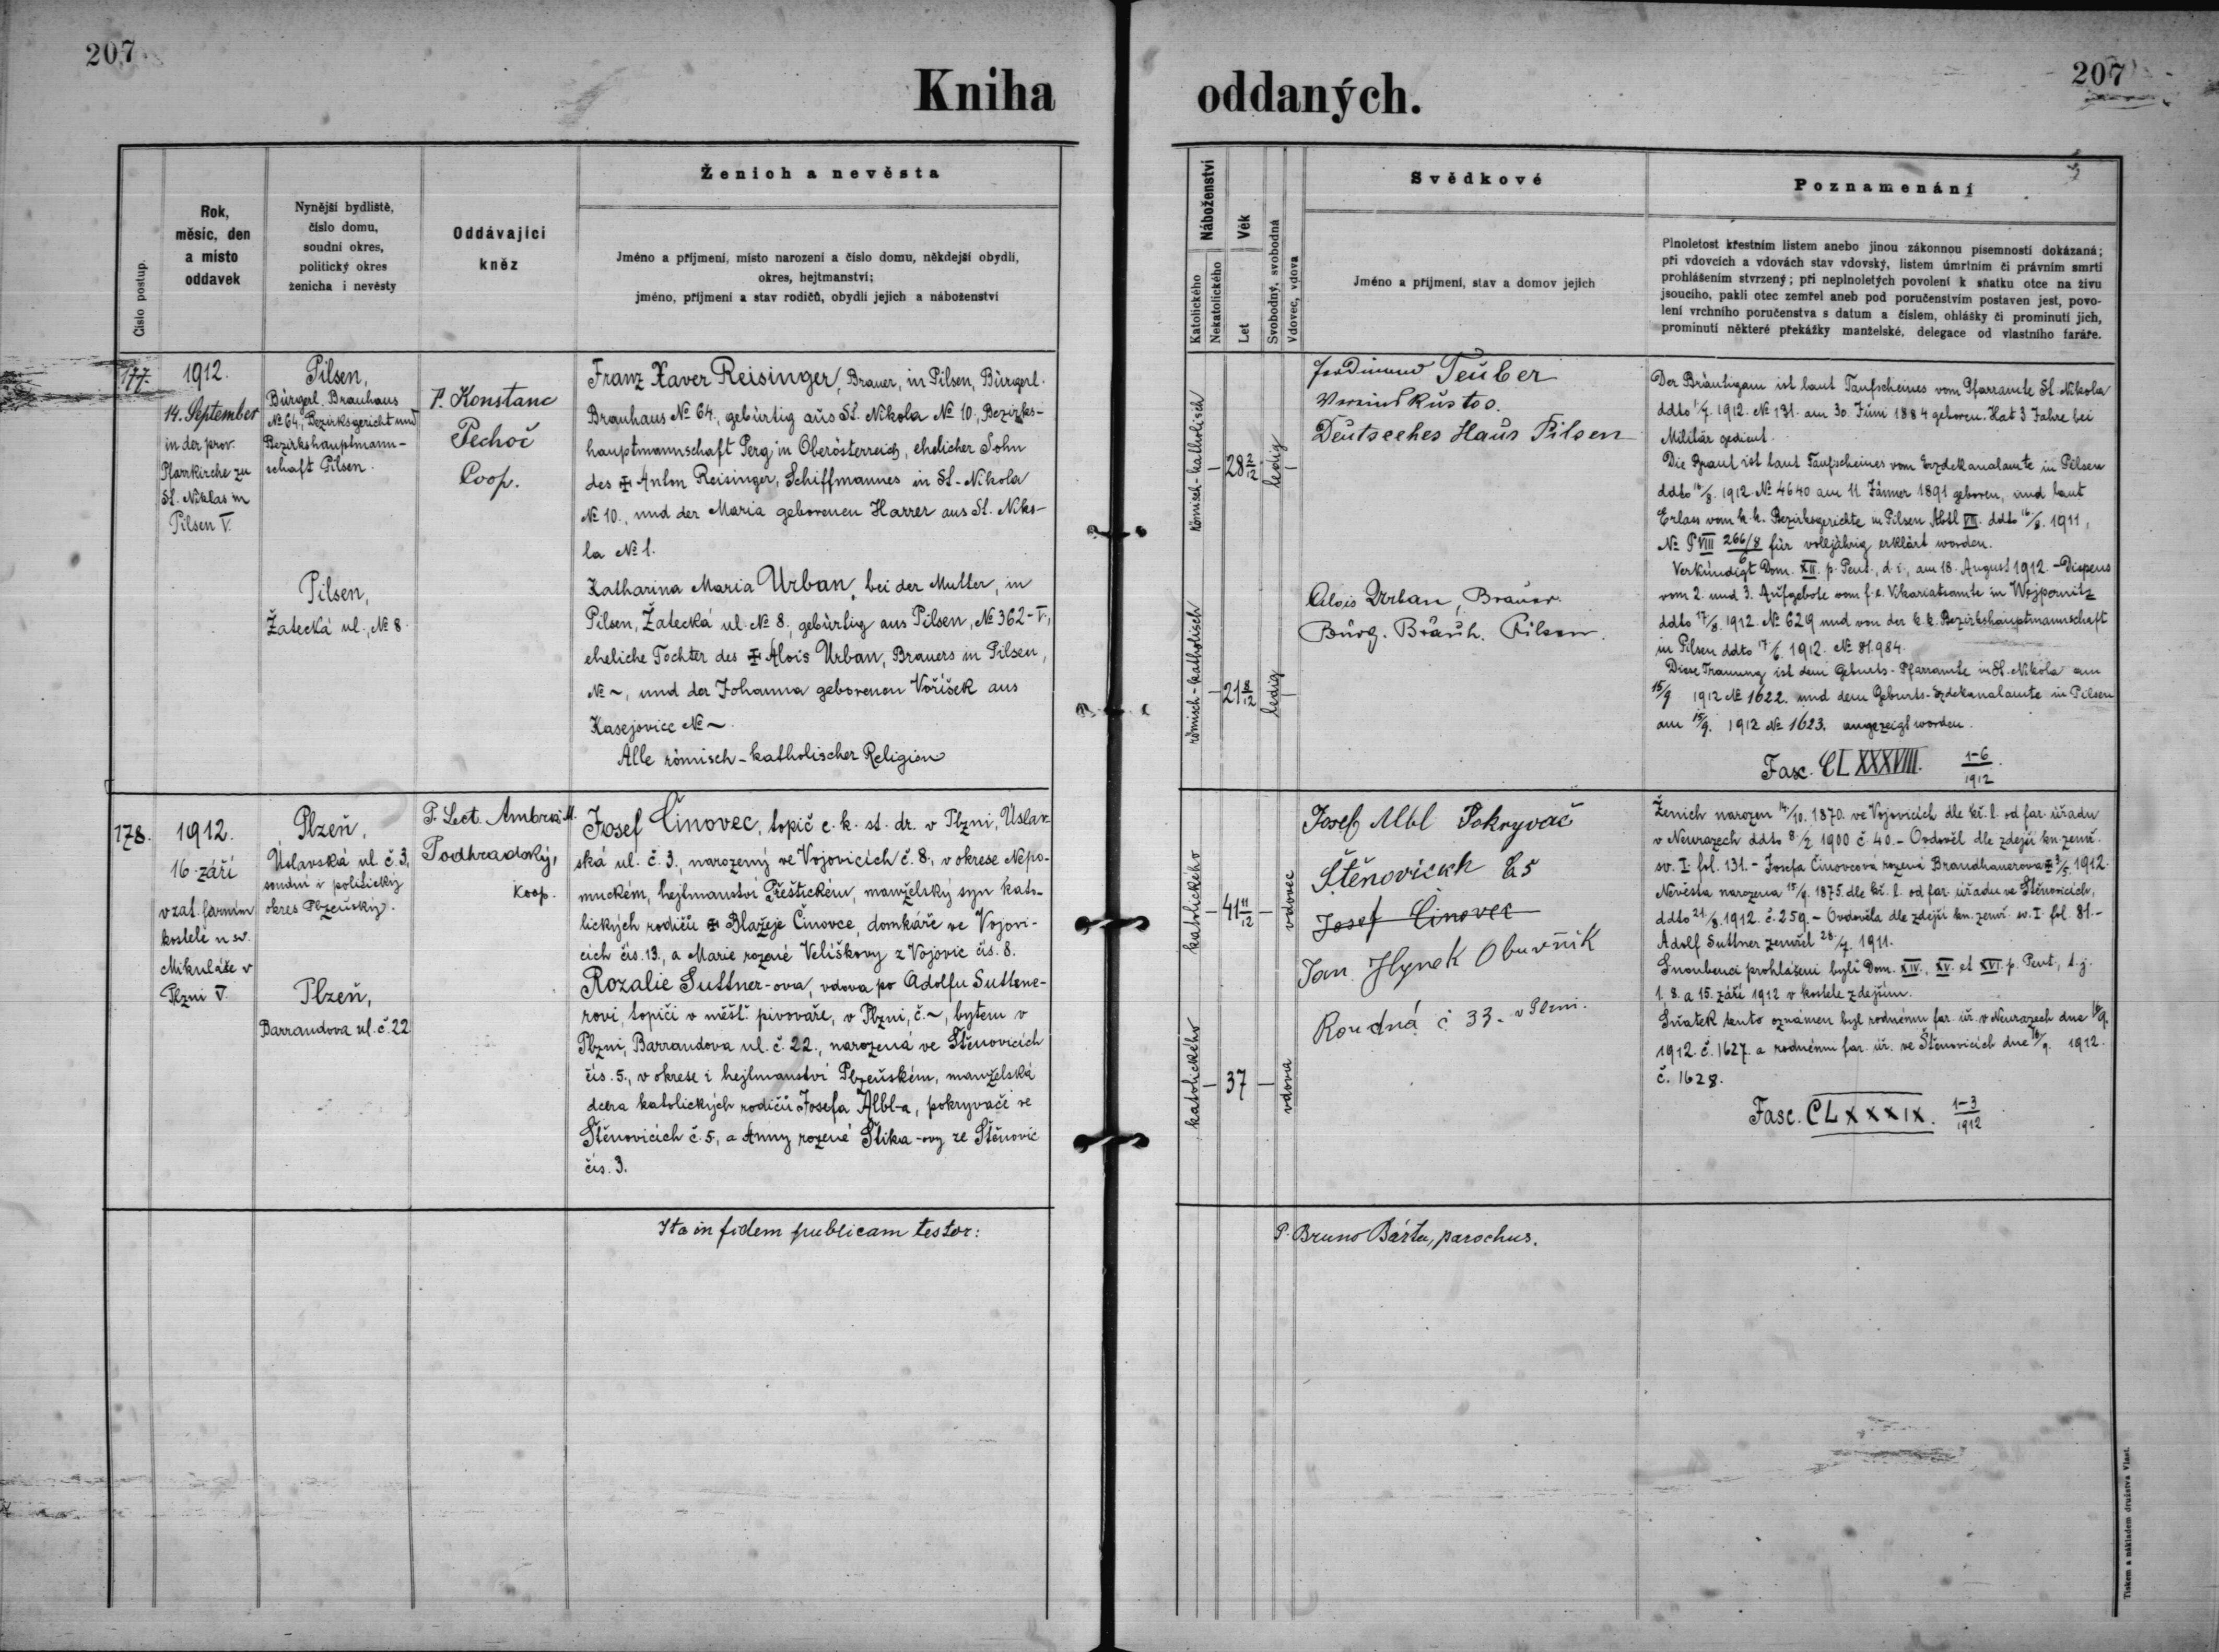 207
207
Kniha oddaných.
Číslo postup.
Rok,
měsíc, den
a místo
oddavek
Nynější bydliště,
číslo domu,
soudní okres,
politický okres
ženicha i nevěsty
Oddávající
kněz
Ženich a nevěsta
Jméno a příjmení, místo narození a číslo domu, někdejší obydlí,
okres, hejtmanství;
jméno, příjmení a stav rodičů, obydlí jejich a náboženství
Náboženství
Katolického
Nekatolického
Věk
Let
Svobodný, svobodná
Vdovec, vdova
Svědkové
Jméno a příjmení, stav a domov jejich
Poznamenání
Plnoletost křestním listem anebo jinou zákonnou písemností dokázaná;
při vdovcích a vdovách stav vdovský, listem úmrtním či právním smrti
prohlášením stvrzený; při neplnoletých povolení k sňatku otce na živu
jsoucího, pakli otec zemřel aneb pod poručenstvím postaven jest, povo-
lení vrchního poručenstva s datum a číslem, ohlášky či prominutí jich,
prominutí některé překážky manželské, delegace od vlastního faráře.
177.
1912.
14. September
in der prov.
Pfarrkirche zu
St. Niklas in
Pilsen V.
Pilsen,
Bürgerl. Brauhaus
№ 64, Bezirksgericht und
Bezirkshauptmann-
schaft Pilsen.
Pilsen,
Žatecká ul., № 8.
P. Konstanc
Pechoč
Coop.
Franz Xaver Reisinger, Brauer, in Pilsen, Bürgerl.
Brauhaus № 64, gebürtig aus St. Nikola № 10, Bezirks-
hauptmannschaft Perg in Oberösterreich, ehelicher Sohn
des ✠ Anton Reisinger, Schiffmannes in St. Nikola
№ 10., und der Maria geborenen Harrer aus St. Niko-
la № 1.
Katharina Maria Urban, bei der Mutter, in
Pilsen, Žatecká ul. № 8., gebürtig aus Pilsen, № 362-V.,
eheliche Tochter des ✠ Alois Urban, Brauers in Pilsen,
№ ~, und der Johanna geborenen Voříšek aus
Kasejovic № ~.
Alle römisch-katholischer Religion
römisch-katholisch
– 28 2/12 –
ledig
römisch-katholisch
– 21 8/12 –
ledig
Ferdinand Teuber
Vereinskustos.
Deutsches Haus Pilsen
Alois Urban, Brauer.
Bürg. Bräuh. Pilsen.
Der Bräutigam ist laut Taufscheines vom Pfarramte St. Nikola
ddto 1/7. 1912. № 131. am 30. Juni 1884 geboren. Hat 3 Jahre bei
Militär gedient.
Die Braut ist laut Taufscheines vom Erzdekanalamte in Pilsen
ddto 16/8. 1912. № 4640 am 11. Jänner 1891 geboren, und laut
Erlass vom k. k. Bezirksgerichte in Pilsen Abtl VIII. ddto 16/8. 1911,
№ P VIII 266/8 6 für volljährig erklärt worden.
Verkündigt Dom. XII. p. Pent., d. i., am 18. August 1912. – Dispens
vom 2. und 3. Aufgebote vom f. e. Vikariatsamte in Wejpernitz
ddto 17/8. 1912. № 629 und von der k. k. Bezirkshauptmannschaft
in Pilsen ddto 17/8. 1912. № 81.984.
Diese Trauung ist dem Geburts-Pfarramte in St. Nikola am
15/9 1912 № 1622. und dem Geburts-Erzdekanalamte in Pilsen
am 15/9. 1912 № 1623. angezeigt worden.
Fasc. CLXXXVIII. 1–6/1912.
178.
1912.
16. září
v zat. farním
kostele u sv.
Mikuláše v
Plzni V.
Plzeň,
Úslavská ul. č. 3,
soudní i politický
okres Plzeňský.
Plzeň,
Barrandova ul. č. 22
P. Lect. Ambrož M.
Podhradský,
koop.
Josef Činovec, topič c. k. st. dr. v Plzni, Úslav-
ská ul. č. 3., narozený ve Vojovicích č. 8., v okrese Nepo-
muckém, hejtmanství Přeštickém, manželský syn kato-
lických rodičů ✠ Blažeje Činovce, domkáře ve Vojovi-
cích čís. 13., a Marie rozené Velíškovy z Vojovic čís. 8.
Rozalie Suttner-ova, vdova po Adolfu Suttene-
rovi, topiči v měšť. pivováře, v Plzni, č. ~, bytem v
Plzni, Barrandova ul. č. 22., narozená ve Štěnovicích
čís. 5., v okrese i hejtmanství Plzeňském, manželská
dcera katolických rodičů Josefa Albl-a, pokryvače ve
Štěnovicích č. 5, a Anny rozené Šlika-ovy ze Štěnovic
čís. 3.
katolického
– 41 11/12 –
vdovec
katolického
– 37 –
vdova
Josef Albl Pokryvač
Štěnovicích č. 5
Josef Činovec
Jan Hynek Obuvník
Roudná č 33. v Plzni.
Ženich narozen 14./10. 1870. ve Vojovicích dle kř. l. od far. úřadu
v Neurazech ddto 8./2. 1900 č. 40. – Ovdověl dle zdejší kn. zemř.
sv. I. fol. 131. – Josefa Činovcová rozená Brandhauerova ✠ 3/5. 1912.
Nevěsta narozena 15/9. 1875. dle kř. l. od far. úřadu ve Štěnovicích,
ddto 21./8. 1912. č. 259. – Ovdověla dle zdejší kn. zemř. sv. I. fol. 81. –
Adolf Suttner zemřel 28/7. 1911.
Snoubenci prohlášeni byli Dom. XIV., XV. et XVI. p. Pent., t. j.
1. 8. a 15. září 1912 v kostele zdejším.
Sňatek tento oznámen byl rodnému far. úř. v Neurazech dne 16/9.
1912. č. 1627. a rodnému far. úř. ve Štěnovicích dne 16/9. 1912.
č. 1628.
Fasc. CLXXXIX. 1–3/1912
Ita in fidem publicam testor:
P. Bruno Bárta, parochus.
Tiskem a nákladem družstva Vlast.